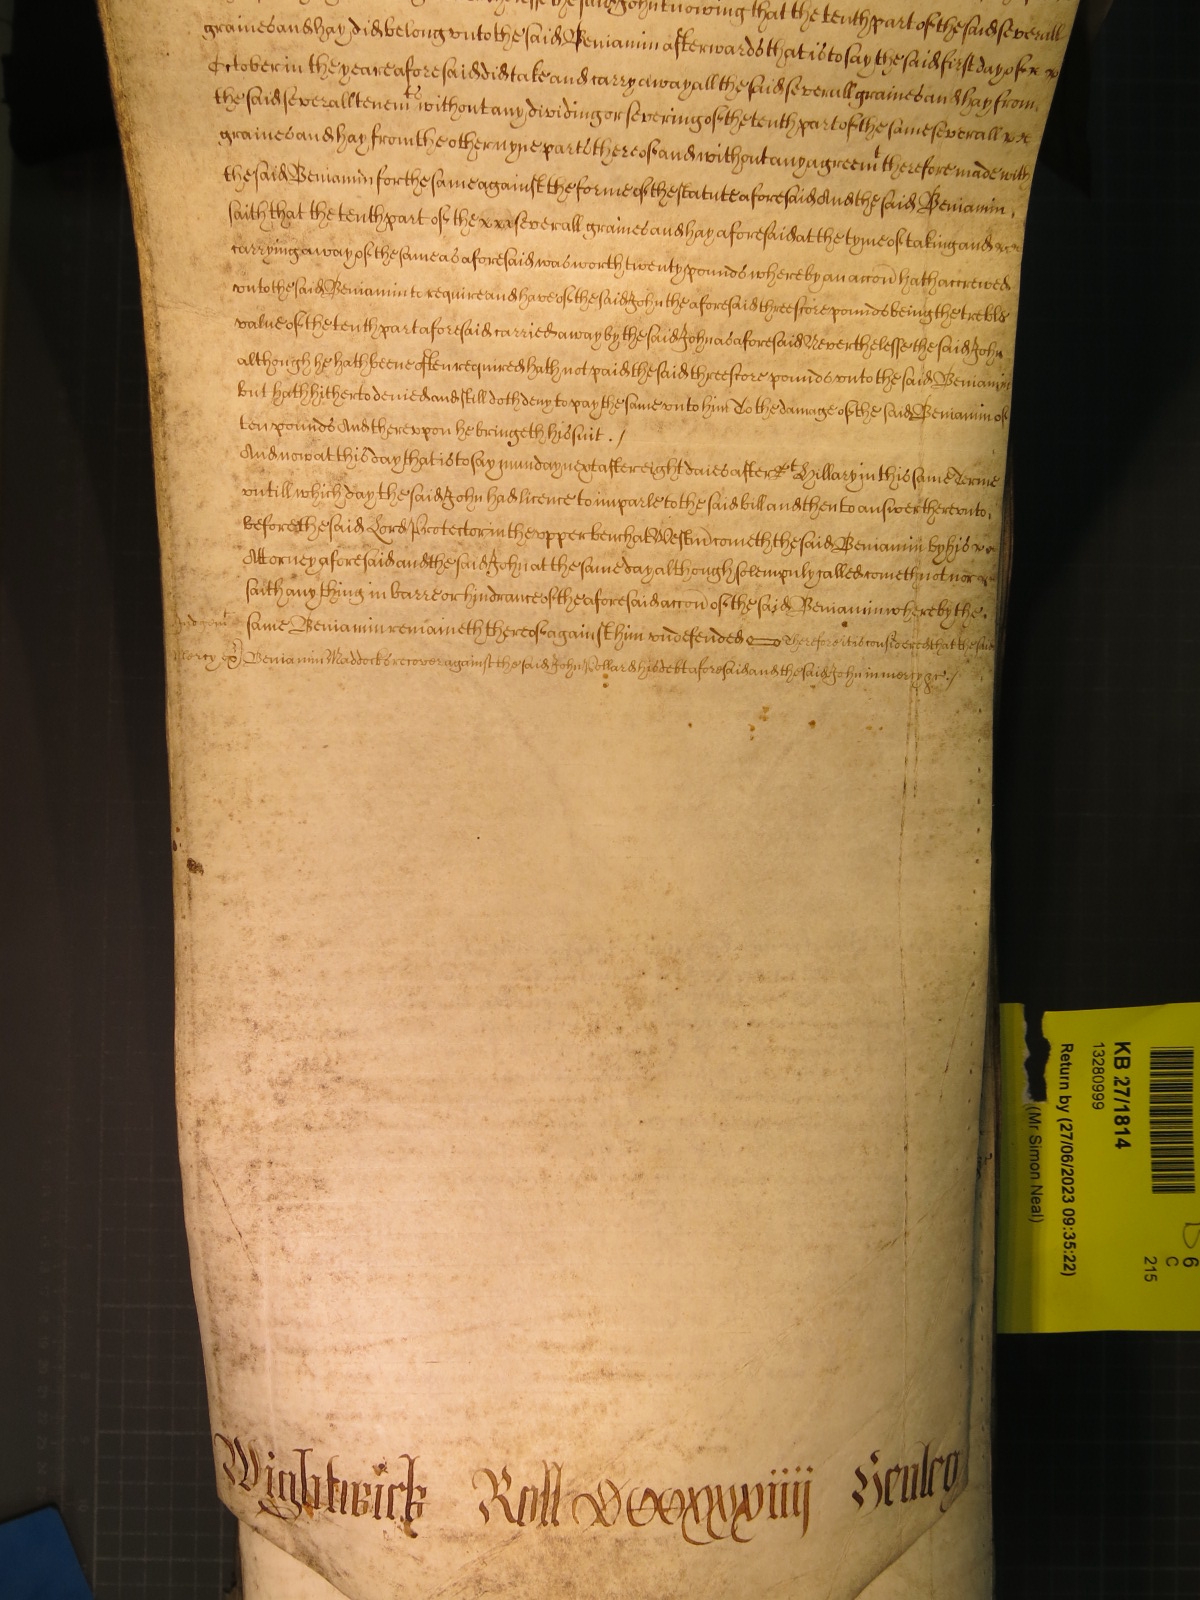 the said John knowing that the tenth part of the said severall
graines and hay did belong unto the said Beniamin afterwards that is to say the said first day of
October in the yeare aforesaid did take and carry away all the said severall graines and hay from
the said severall tenemts without any dividing or severing of the tenth part of the same severall
graines and hay from the other nyne parts thereof and without any agreemt therefore made with
the said Beniamin for the same against the forme of the statute aforesaid And the said Beniamin
saith that the tenth part of the severall graines and hay aforesaid at the tyme of taking and
carrying away of the same as aforesaid was worth twenty pounds whereby an accon hath accrewed
unto the said Beniamin to require and have of the said John the aforesaid threescore pounds being the treble
value of the tenth part aforesaid carried away by the said John as aforesaid Neverthelesse the said John
although he hath beene often required hath not paid the said threescore pounds unto the said Beniamin
but hath hitherto denied and still doth deny to pay the same unto him To the damage of the said Beniamin of
ten pounds And thereupon he bringeth his suit . /
And now at this day that is to say munday next after eight daies after St Hillary in this same Terme
untill which day the said John had licence to imparle to the said bill and then to answer thereunto
before the said Lord Protector in the upper bench at Westm cometh the said Beniamin by his
Attorney aforesaid and the said John at the same day although solempnly called cometh not nor
saith any thing in barre or hindrance of the aforesaid accon of the said Beniamin whereby the
Judgemt same Beniamin remaineth thereof against him undefended Therefore it is considered that the said
Mercy Beniamin Maddocks recover against the said John Pollard his debt aforesaid and the said John in mercy &c /
Wightwick Roll Henley
KB 27/1814
13280999
Return by (27/06/2023 09:35:22)
(Mr Simon Neal)
6
C
215